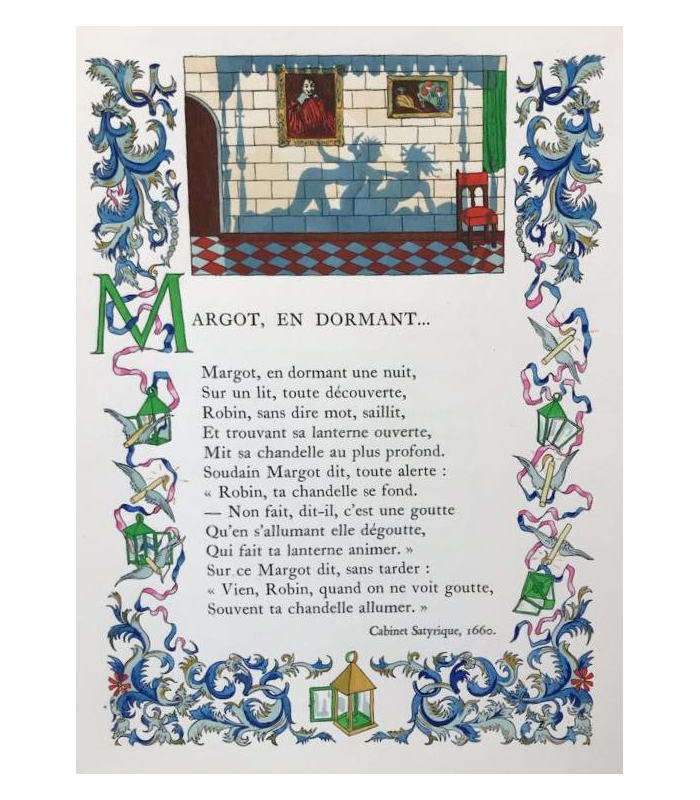 MARGOT, EN DORMANT...
Margot, en dormant une nuit,
Sur un lit, toute découverte,
Robin, sans dire mot, saillit,
Et trouvant sa lanterne ouverte,
Mit sa chandelle au plus profond.
Soudain Margot dit, toute alerte :
« Robin, ta chandelle se fond.
— Non fait, dit-il, c'est une goutte
Qu'en s'allumant elle dégoutte,
Qui fait ta lanterne animer. »
Sur ce Margot dit, sans tarder :
« Vien, Robin, quand on ne voit goutte,
Souvent ta chandelle allumer. »
Cabinet Satyrique, 1660.